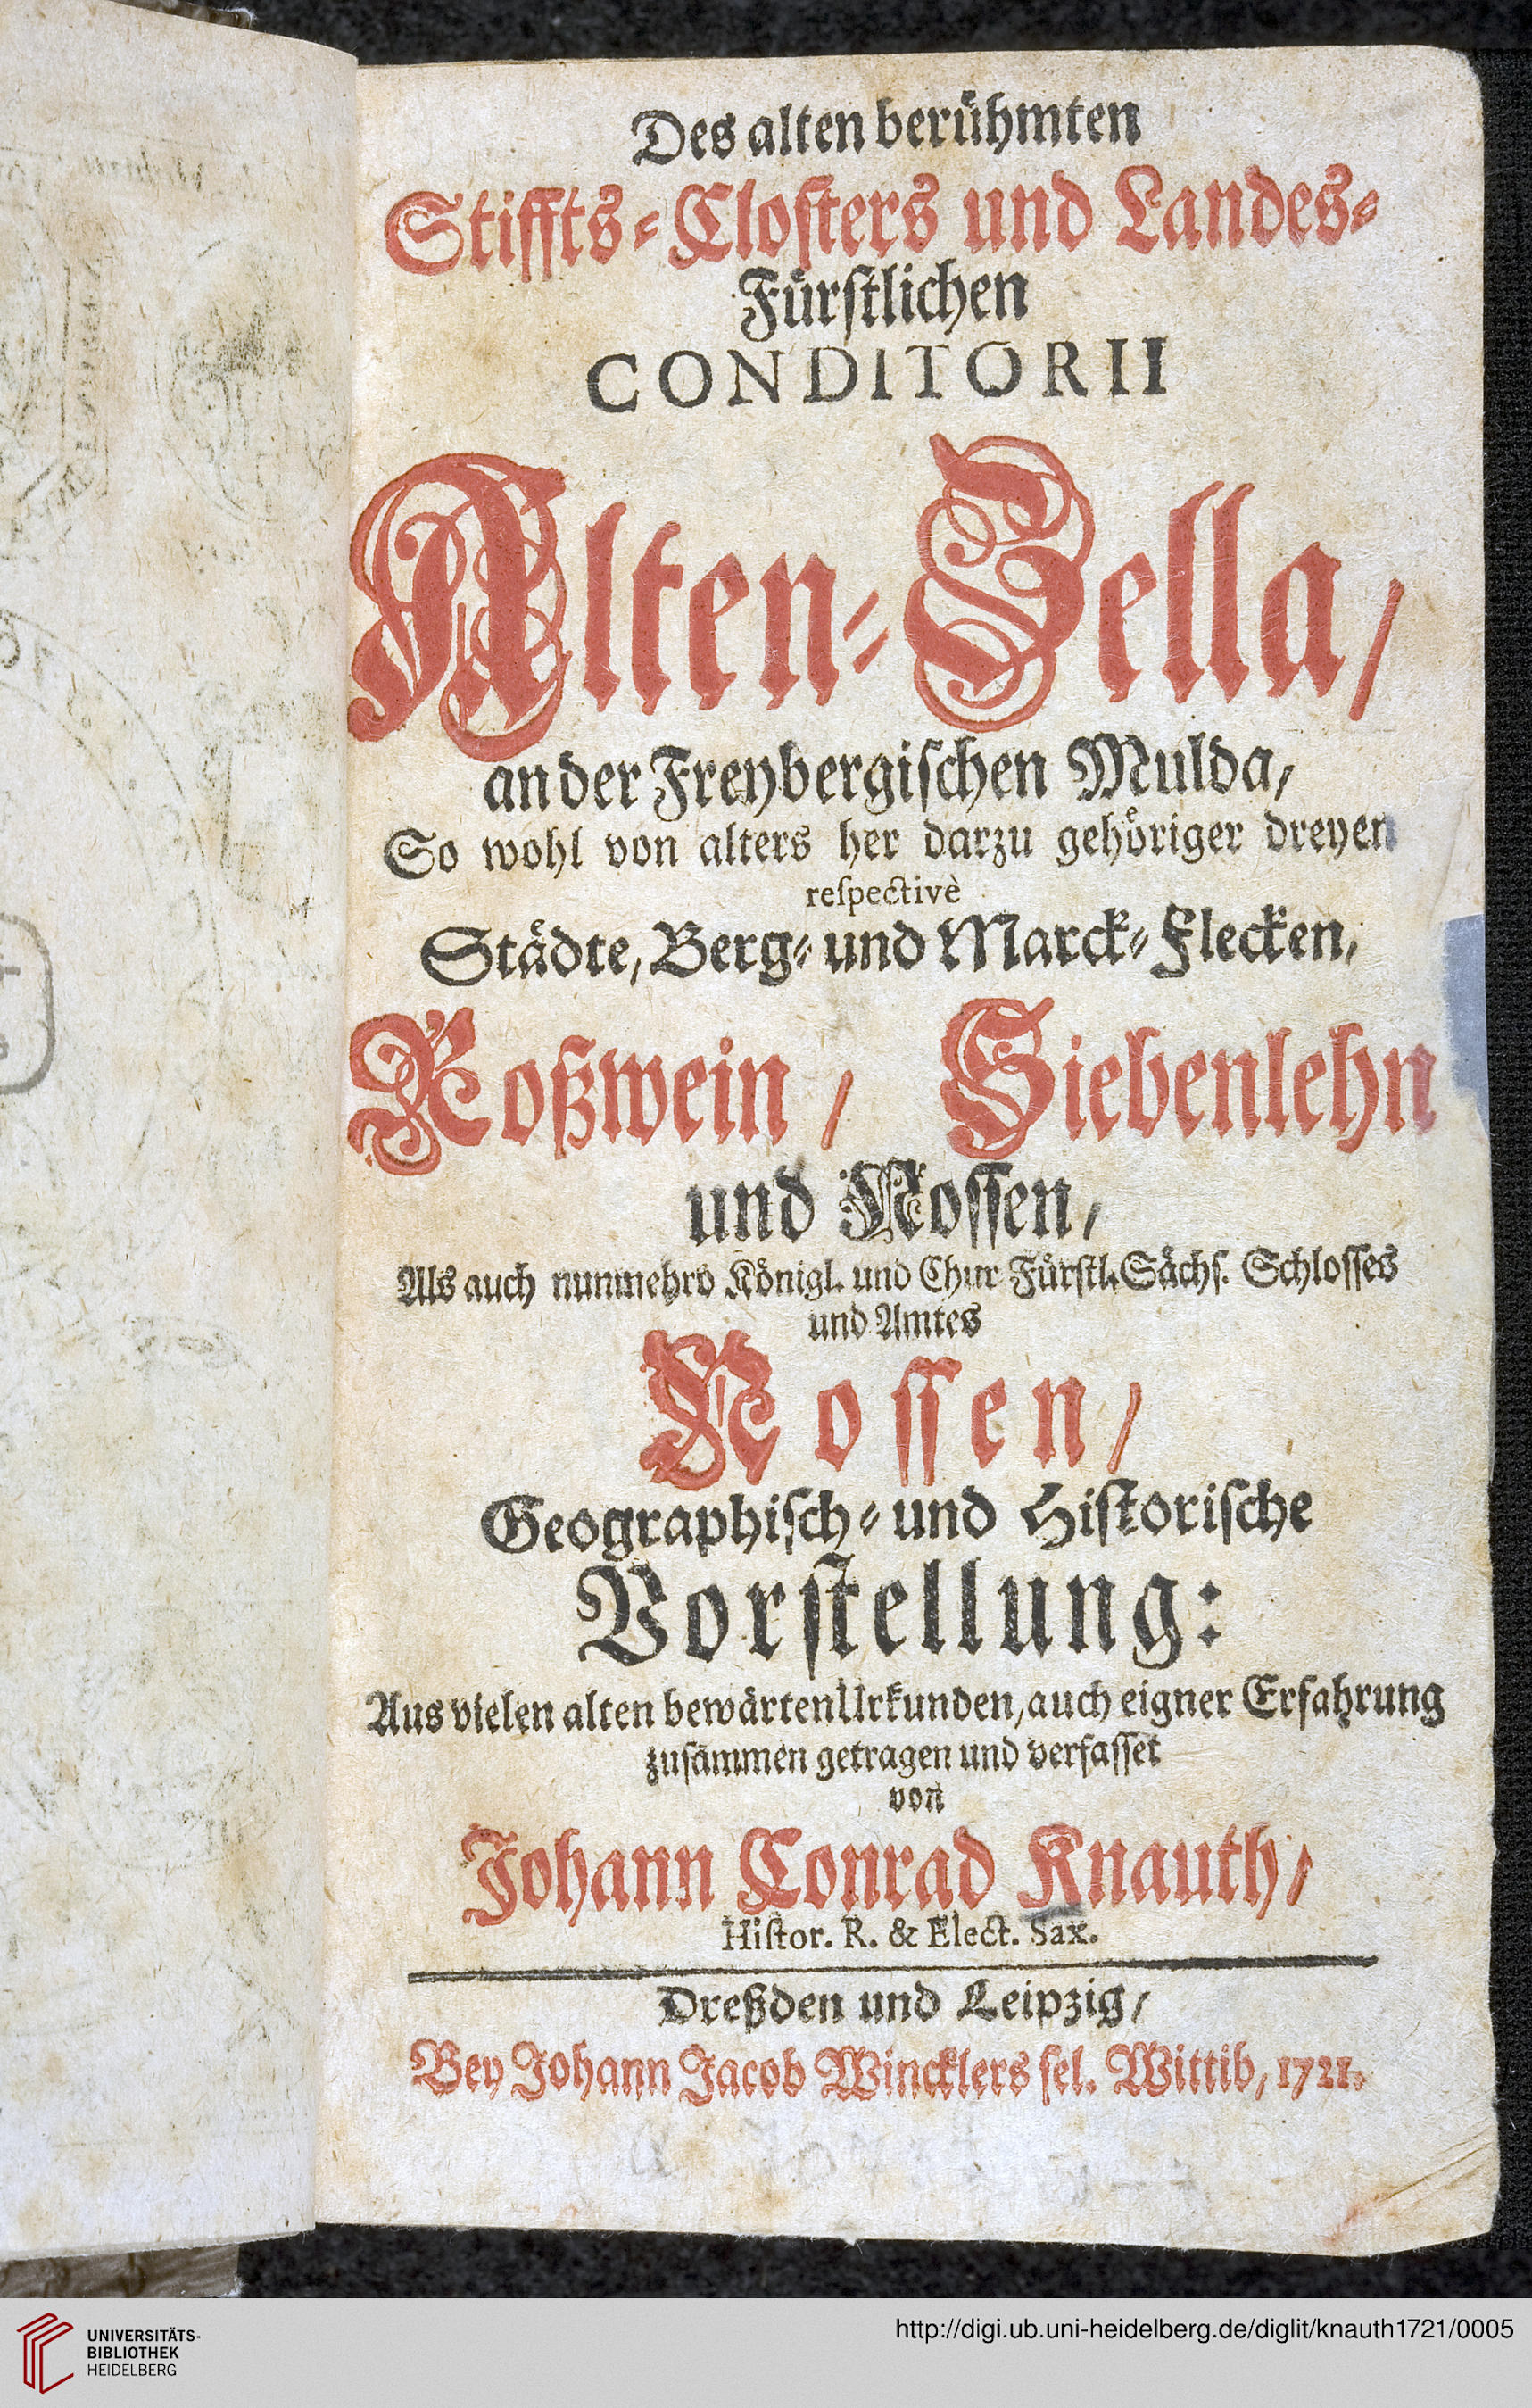 Des alten berühmten
Stiffts-Closters und Landes-
Fürstlichen
CONDITORII
Alten-Zella/
an der Freybergischen Mulda,
So wohl von alters her darzu gehöriger dreyen
respectivè
Städte, Berg- und Marck-Flecken,
Roßwein / Siebenlehn
und Nossen,
Als auch nunmehro Königl. und Chur Fürstl. Sächs. Schlosses
und Amtes
Nossen/
Geographisch- und Historische
Vorstellung:
Aus vielen alten bewärten Urkunden, auch eigner Erfahrung
zusammen getragen und verfasset
von
Johann Conrad Knauth/
Histor. R. & Elect. Sax.
Dreßden und Leipzig/
Bey Johann Jacob Wincklers sel. Wittib, 1721.
UNIVERSITÄTS-
BIBLIOTHEK
HEIDELBERG
http://digi.ub.uni-heidelberg.de/diglit/knauth1721/0005